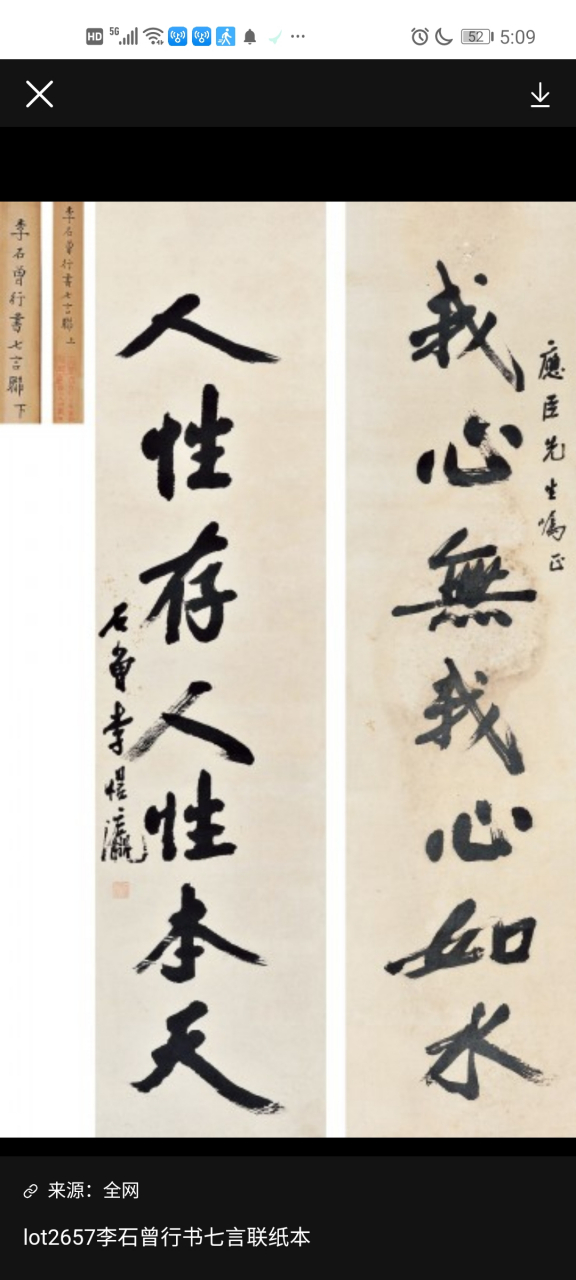 HD 5G 52 5:09
我心無我心如水
應臣先生
正
人性存人性本天
石曾李
瀛
李石曾行書七言聯 上
李石曾行書七言聯 下
来源：全网
lot2657李石曾行书七言联纸本